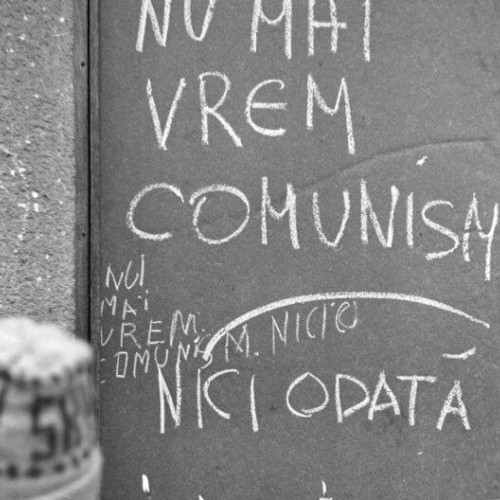 NU MAI
VREM
COMUNISM
NUI
MAI
VREM.
COMUNISM. NICIO
NICI ODATĂ